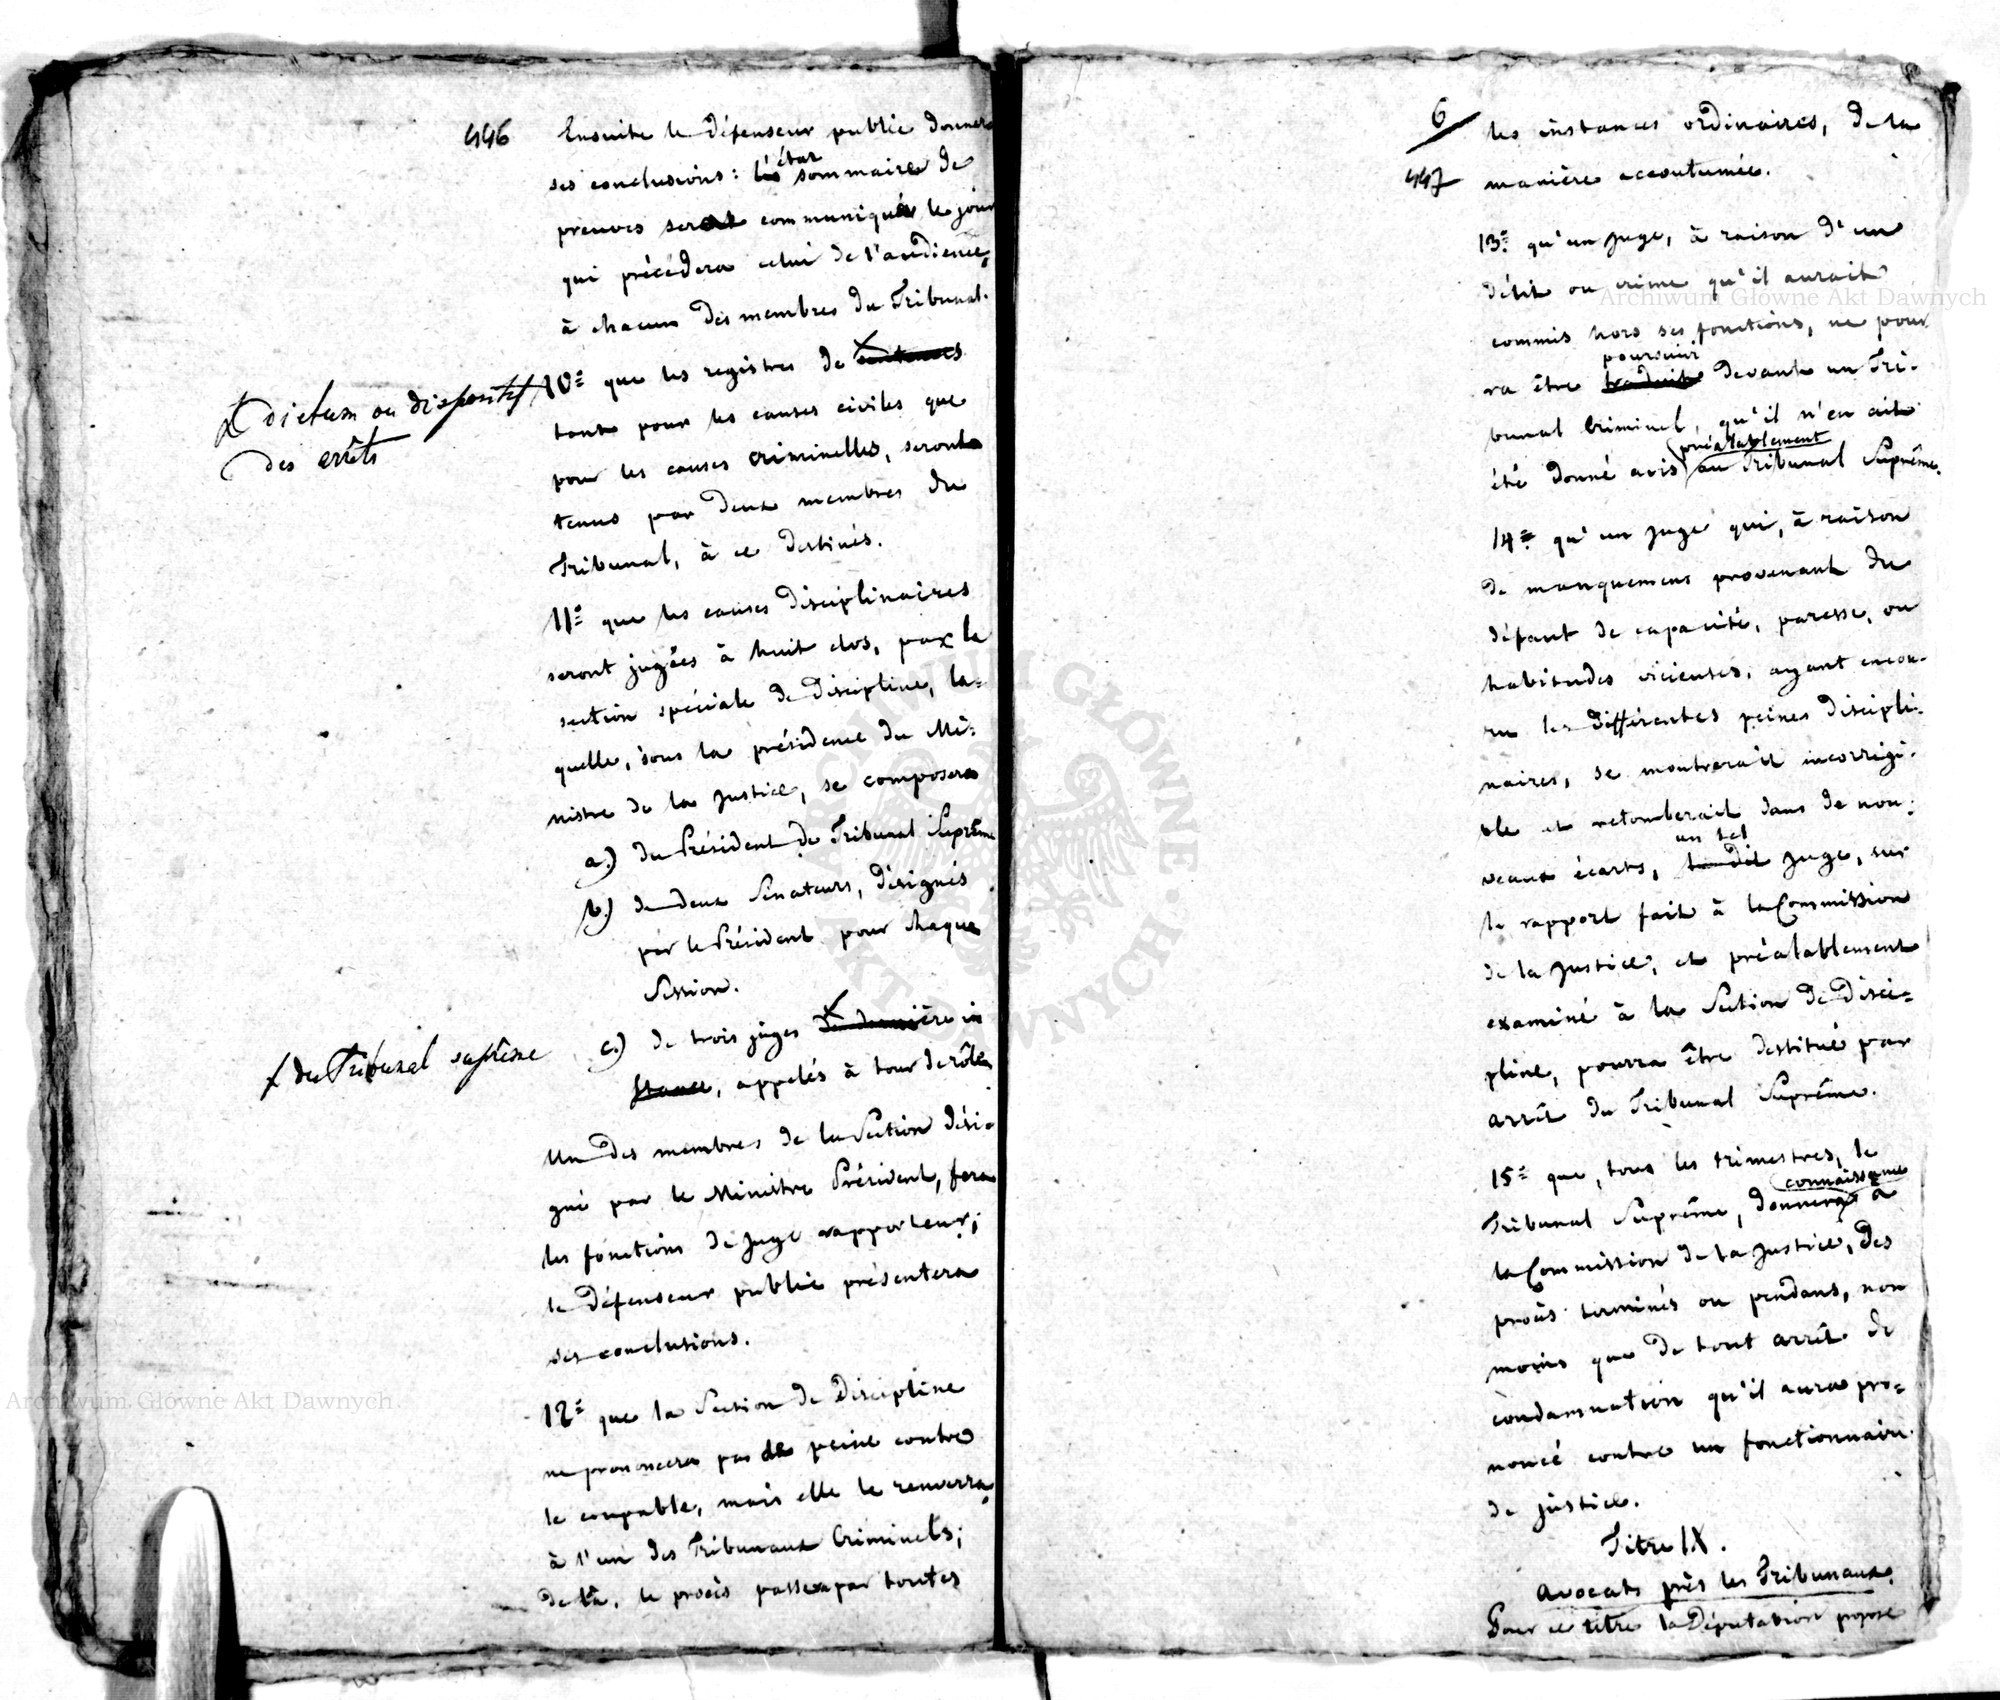 446
Ensuite le défenseur public donnera
ses conclusions: les état sommaire de
preuves sera communiqué le jour
qui précédera celui de l'audience,
à chacun des membres du Tribunal.
10º que les registres de sentences
X dictum ou dispositif
des arrêts
tant pour les causes civiles que
pour les causes criminelles, seront
tenus par deux membres du
Tribunal, à ce destinés.
11º que les causes disciplinaires
seront jugées à huit clos, par la
section spéciale de discipline, la-
quelle, sous la présidence du Mi-
nistre de la Justice, se composera
a.) du Président du Tribunal Suprême
b.) de deux Sénateurs, désignés
par le Président pour chaque
Session.
c.) de trois juges de dernière in
X du Tribunal suprême
stance, appelés à tour de rôle.
Un des membres de la Section dési-
gné par le Ministre Président, fera
les fonctions de juge rapporteur;
le défenseur public présentera
ses conclusions.
12º que la Section de Discipline
ne prononcera pas de peine contre
le coupable, mais elle le renverra
à l'un des Tribunaux Criminels;
de là, le procès passera par toutes
6
447
les instances ordinaires, de la
manière accoutumée.
13º qu'un juge, à raison d'un
délit ou crime qu'il aurait
commis hors ses fonctions, ne pour
poursuivi
ra être traduit devant un Tri-
bunal Criminel, qu'il n'en ait
préalablement
été donné avis au Tribunal Suprême.
14º qu'un juge qui, à raison
de manquemens provenant du
défaut de capacité, paresse, ou
habitudes vicieuses, ayant encou-
ru les différentes peines discipli-
naires, se montrerait incorrigi-
ble et retomberait dans de nou-
un tel
veaux écarts, le dit juge, sur
le rapport fait à la Commission
de la Justice, et préalablement
examiné à la Section de Disci-
pline, pourra être destitué par
arrêt du Tribunal Suprême.
15º que, tous les trimestres, le
connaissance
Tribunal Suprême, donnera à
la Commission de la Justice, des
procès terminés ou pendans, non
moins que de tout arrêt de
condamnation qu'il aura pro-
noncé contre un fonctionnaire
de justice.
Titre IX.
Avocats près les Tribunaux.
Pour ce titre la Députation propose
Archiwum Główne Akt Dawnych
Archiwum Główne Akt Dawnych
ARCHIWUM GŁÓWNE AKT DAWNYCH